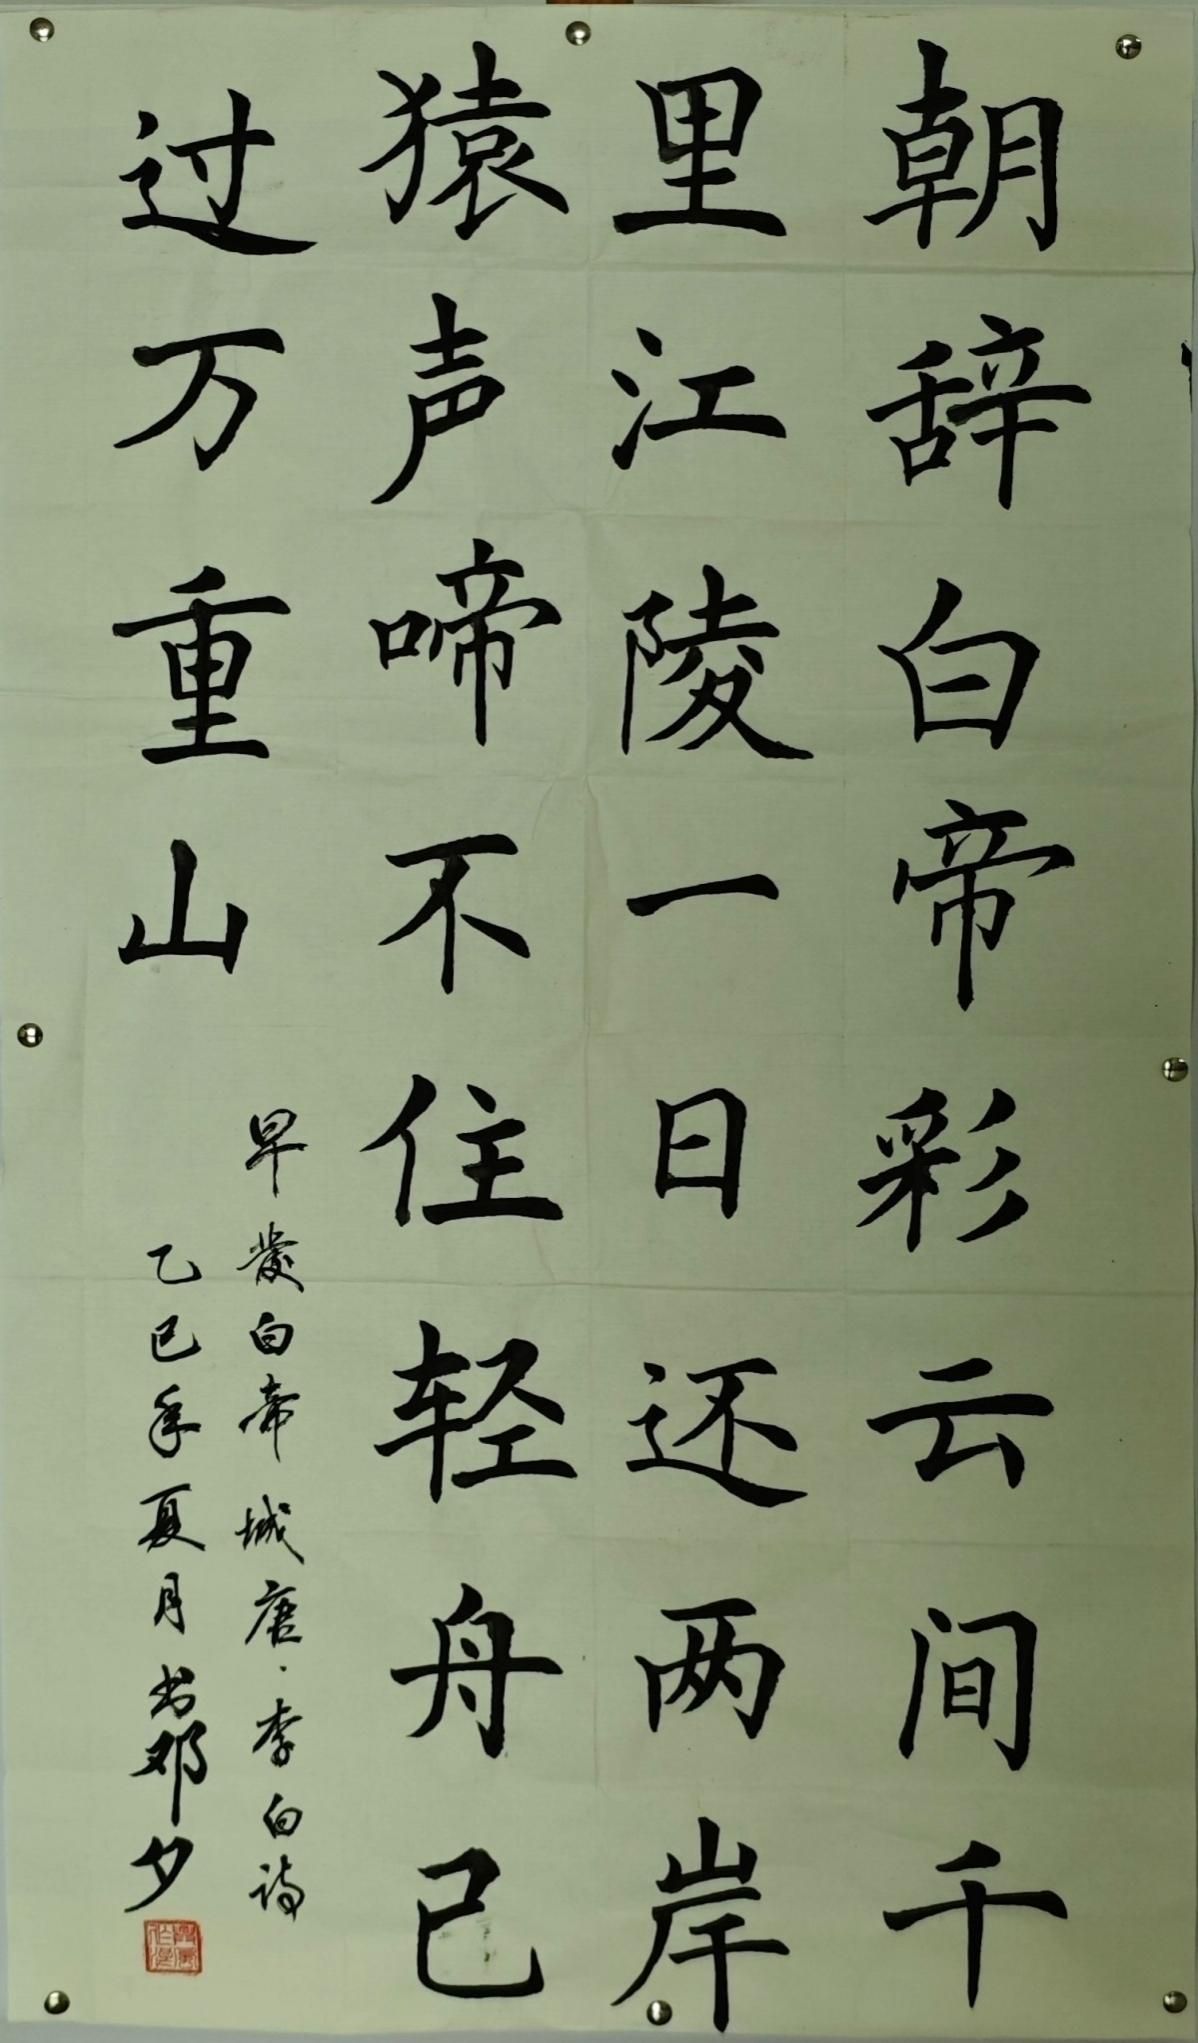 朝辞白帝彩云间千
里江陵一日还两岸
猿声啼不住轻舟已
过万重山
早發白帝城唐·李白诗
乙巳年夏月书邓夕